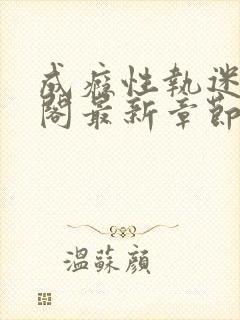 成癮性執迷
閣最新章節
溫蘇顏